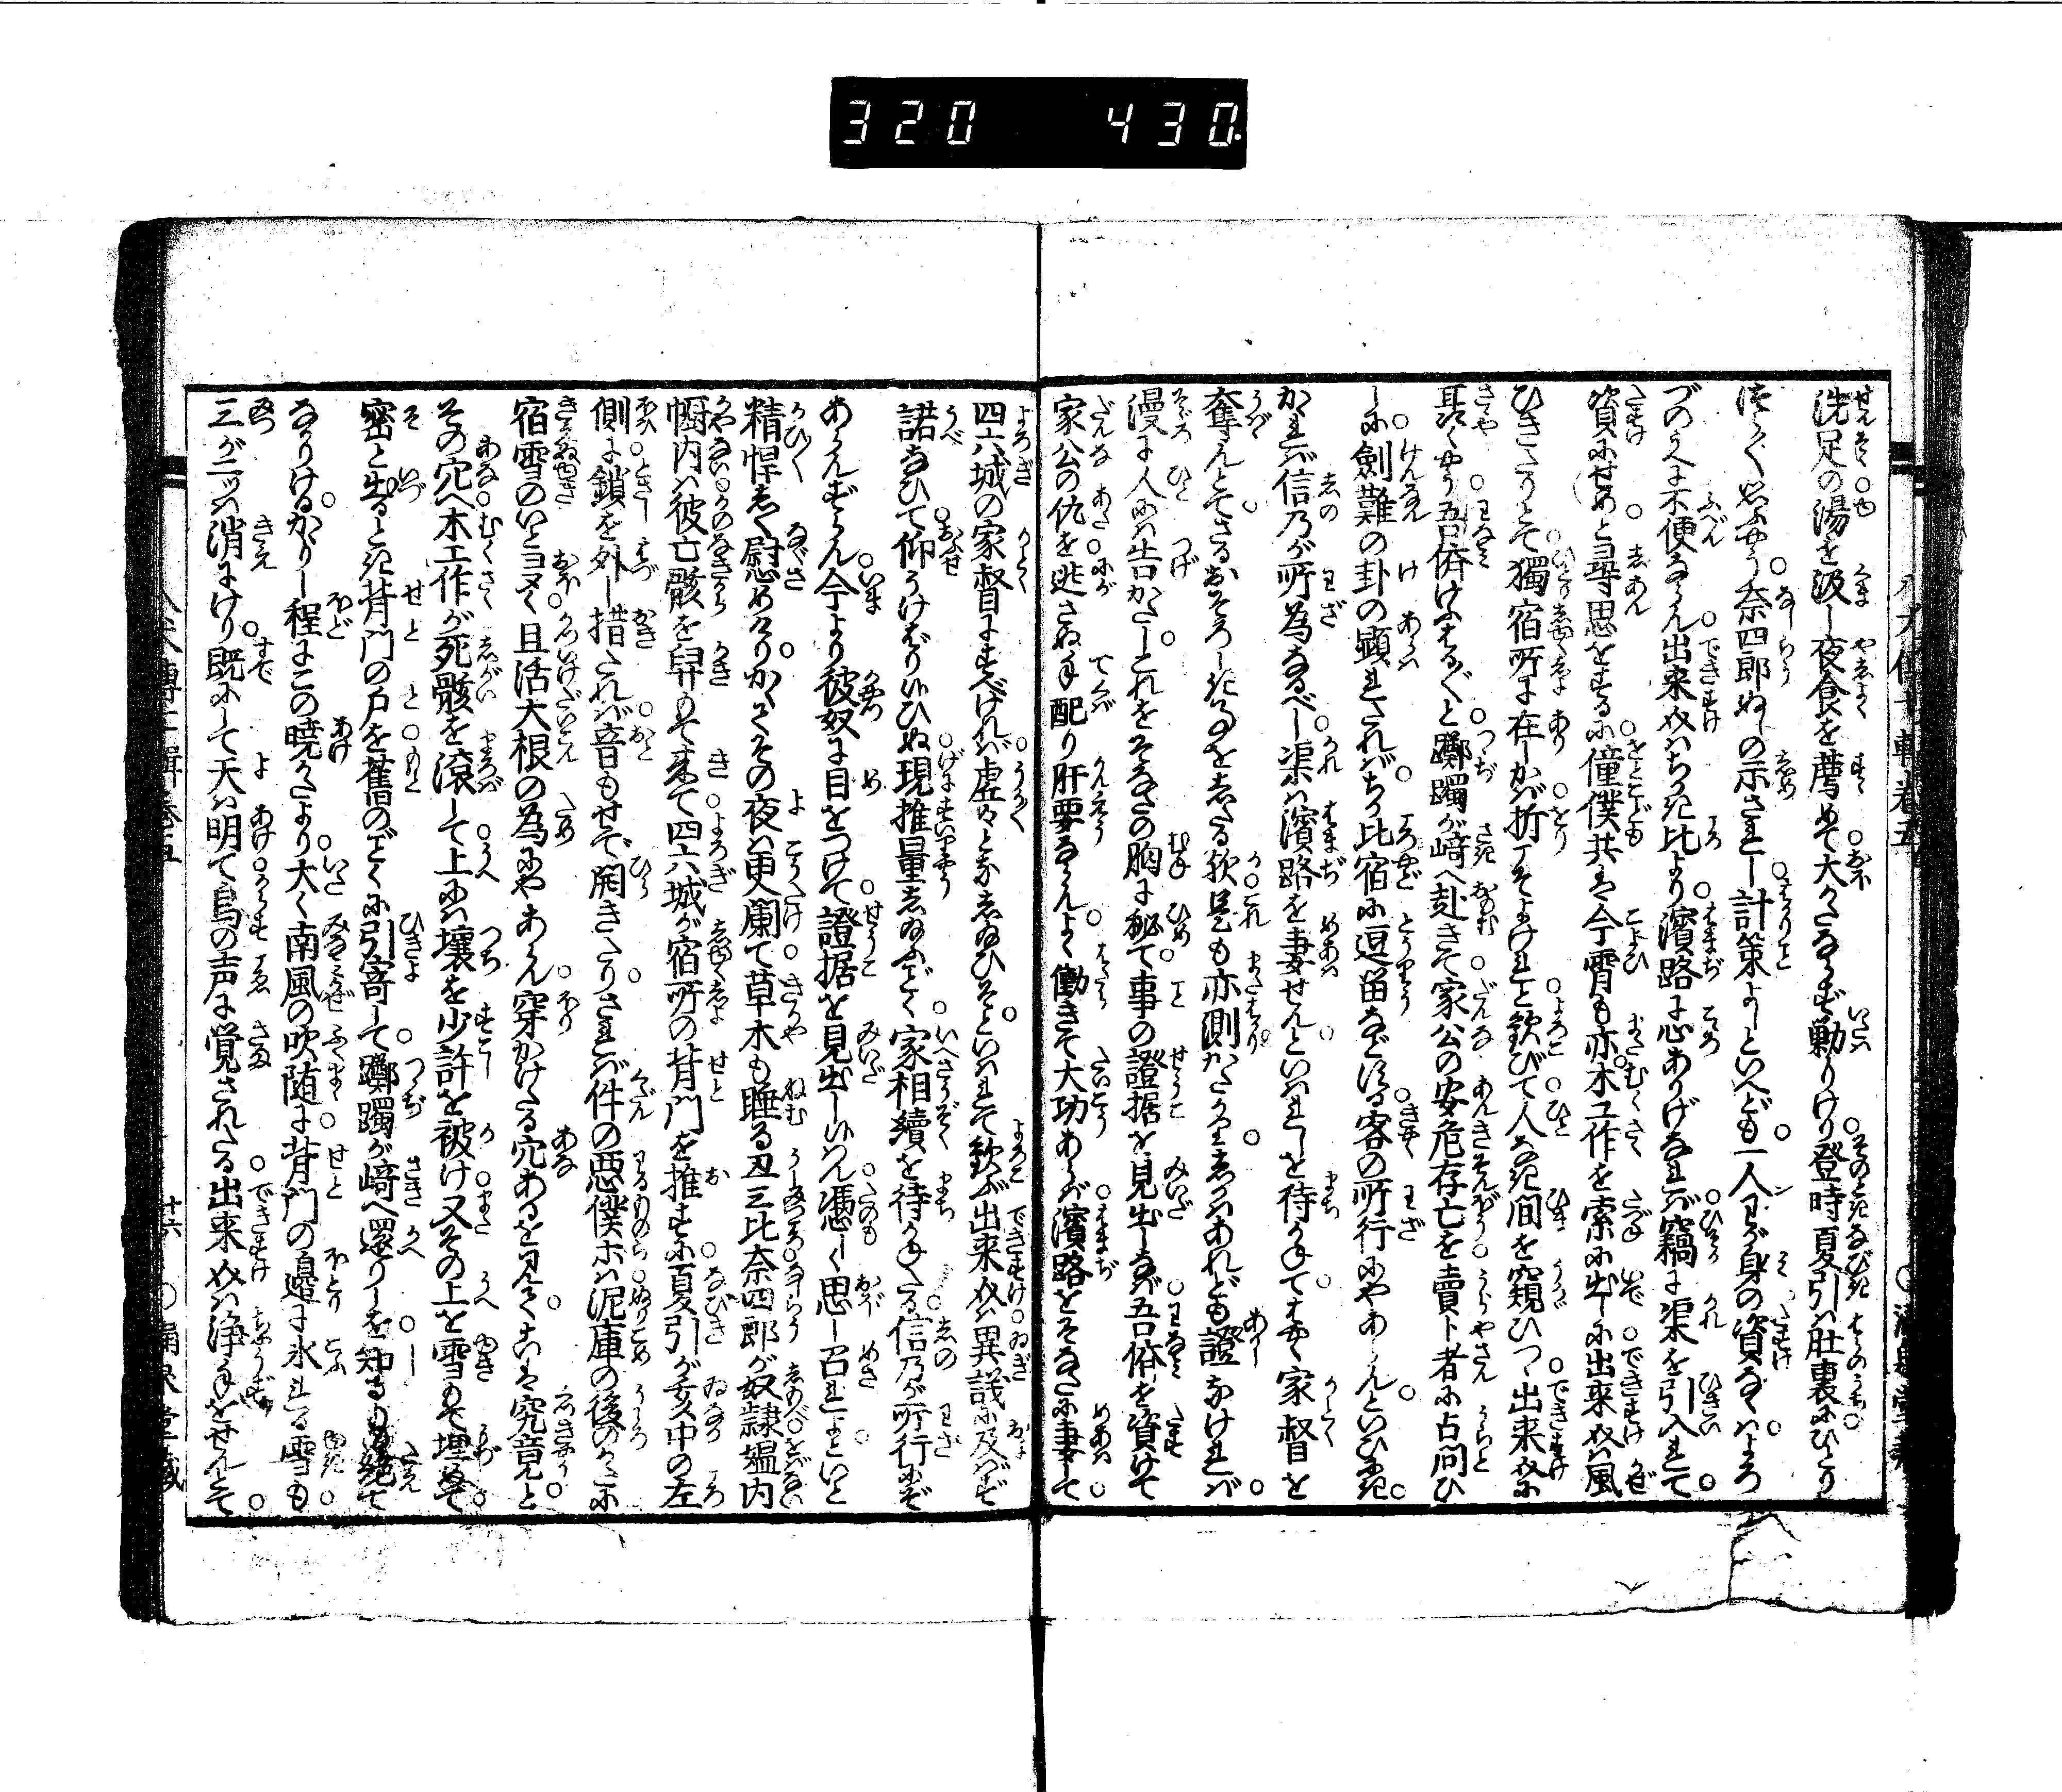 320 430.
洗足の湯を汲し夜食を薦めて大かたならず勦りけり登時夏引は肚裏にひとり
つら〳〵思ふやう奈四郎ぬしの示されし計策よしといへども一人わが身の資なくはよろ
づのうへに不便ならん出来介はちか比より濱路に心ありげなれば竊に渠を引入れて
資にせめと尋思をするに僮僕共は今宵も亦木工作を索に出しに出来介は風
ひきたりとて獨宿所に在しかば折こそよけれと歓びて人なき間を窺ひつゝ出来介に
耳語くやう吾儕けふはる〴〵と躑躅が﨑へ赴きて家公の安危存亡を賣卜者に占問ひ
しに劍難の卦の顕れたればちか比宿に逗留なせる客の所行にやあらんといひにき
かゝれば信乃が所為なるべし渠は濱路を妻せんといはれしを待かねてはやく家督を
奪んとてさるおそろしき事をしたる歟是も亦測かたかり志かはあれども證なければ
漫に人には告かたしこれをそなたの胸に秘て事の證据を見出しなば吾儕を資けて
家公の仇を逃さぬ手配り肝要ならんよく働きて大功あらば濱路をそなたに妻して
四六城の家督にすべければ虚々となし給ひそといはれて歓ぶ出来介は異議に及ばず
諾なひて仰うけ給はり候ひぬ現推量し給ふごとく家相續を待かねたる信乃が所行にぞ
あらんずらん今より彼奴に目をつけて證据を見出し候はん憑しく思し召れよといと
精悍しく慰めけりかくてその夜は更闌て草木も睡る丑三比奈四郎が奴隷媼内
㡡内は彼亡骸を舁もて来て四六城が宿所の背門を推すに夏引が亥中の左
側に鎖を外し措たれば音もせで開きたりさればくだん件の悪僕ホは泥庫の後のかたに
宿雪のいとヨヌく且活大根の為にやあらん穿かけたる穴あるを見てこは究竟と
その穴へ木工作が死骸を滾して上には壤を少許を被け又その上を雪もて埋めて
密と出るとき背門の戸を舊のごとくに引寄て躑躅が﨑へ還りしを知るもの絶て
なりけるかゝりし程にこの暁かたより大く南風の吹随に背門の邉に氷れる雪も
三が二ッは消にけり既にして天は明て烏の声に覚されたる出来介は浄手をせんとて